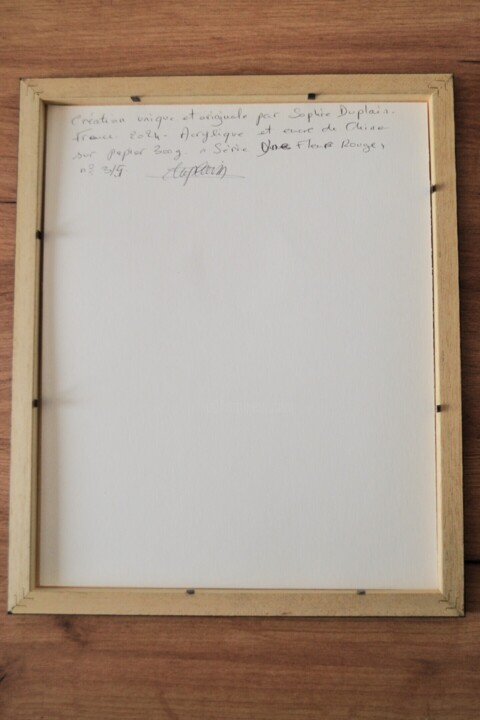 Création unique et originale par Sophie Duplain.
France. 2024. Acrylique et encre de Chine
sur papier 300g. Série Fleurs Rouges
n° 3/5 Duplain